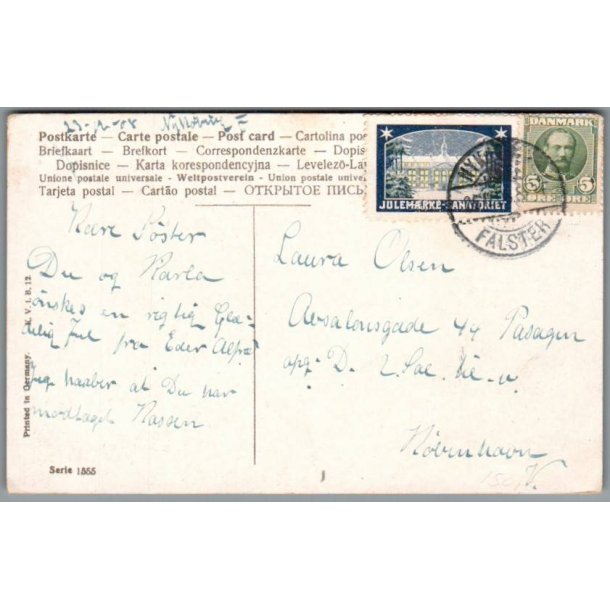 23-12-08 Nykøbing F
Postkarte — Carte postale — Post card — Cartolina po
Briefkaart — Brefkort — Correspondenzkarte — Dopis
Dopisnice — Karta korespondencyjna — Levelező-La
Unione postale universale - Weltpostverein - Union postale univer
Tarjeta postal — Cartão postal — ОТКРЫТОЕ ПИСЬ
JULEMÆRKE-SANATORIET
DANMARK
5 5
ØRE ØRE
FALSTER
Kære Søster
Du og Karla
ønskes en rigtig Glæ-
delig Jul fra Eders Alfred
Jeg haaber at Du har
modtaget Kassen
Laura Olsen
Absalonsgade 44 Passagen
opg. D. 2. Sal
København
V.
Printed in Germany.
Serie 1555